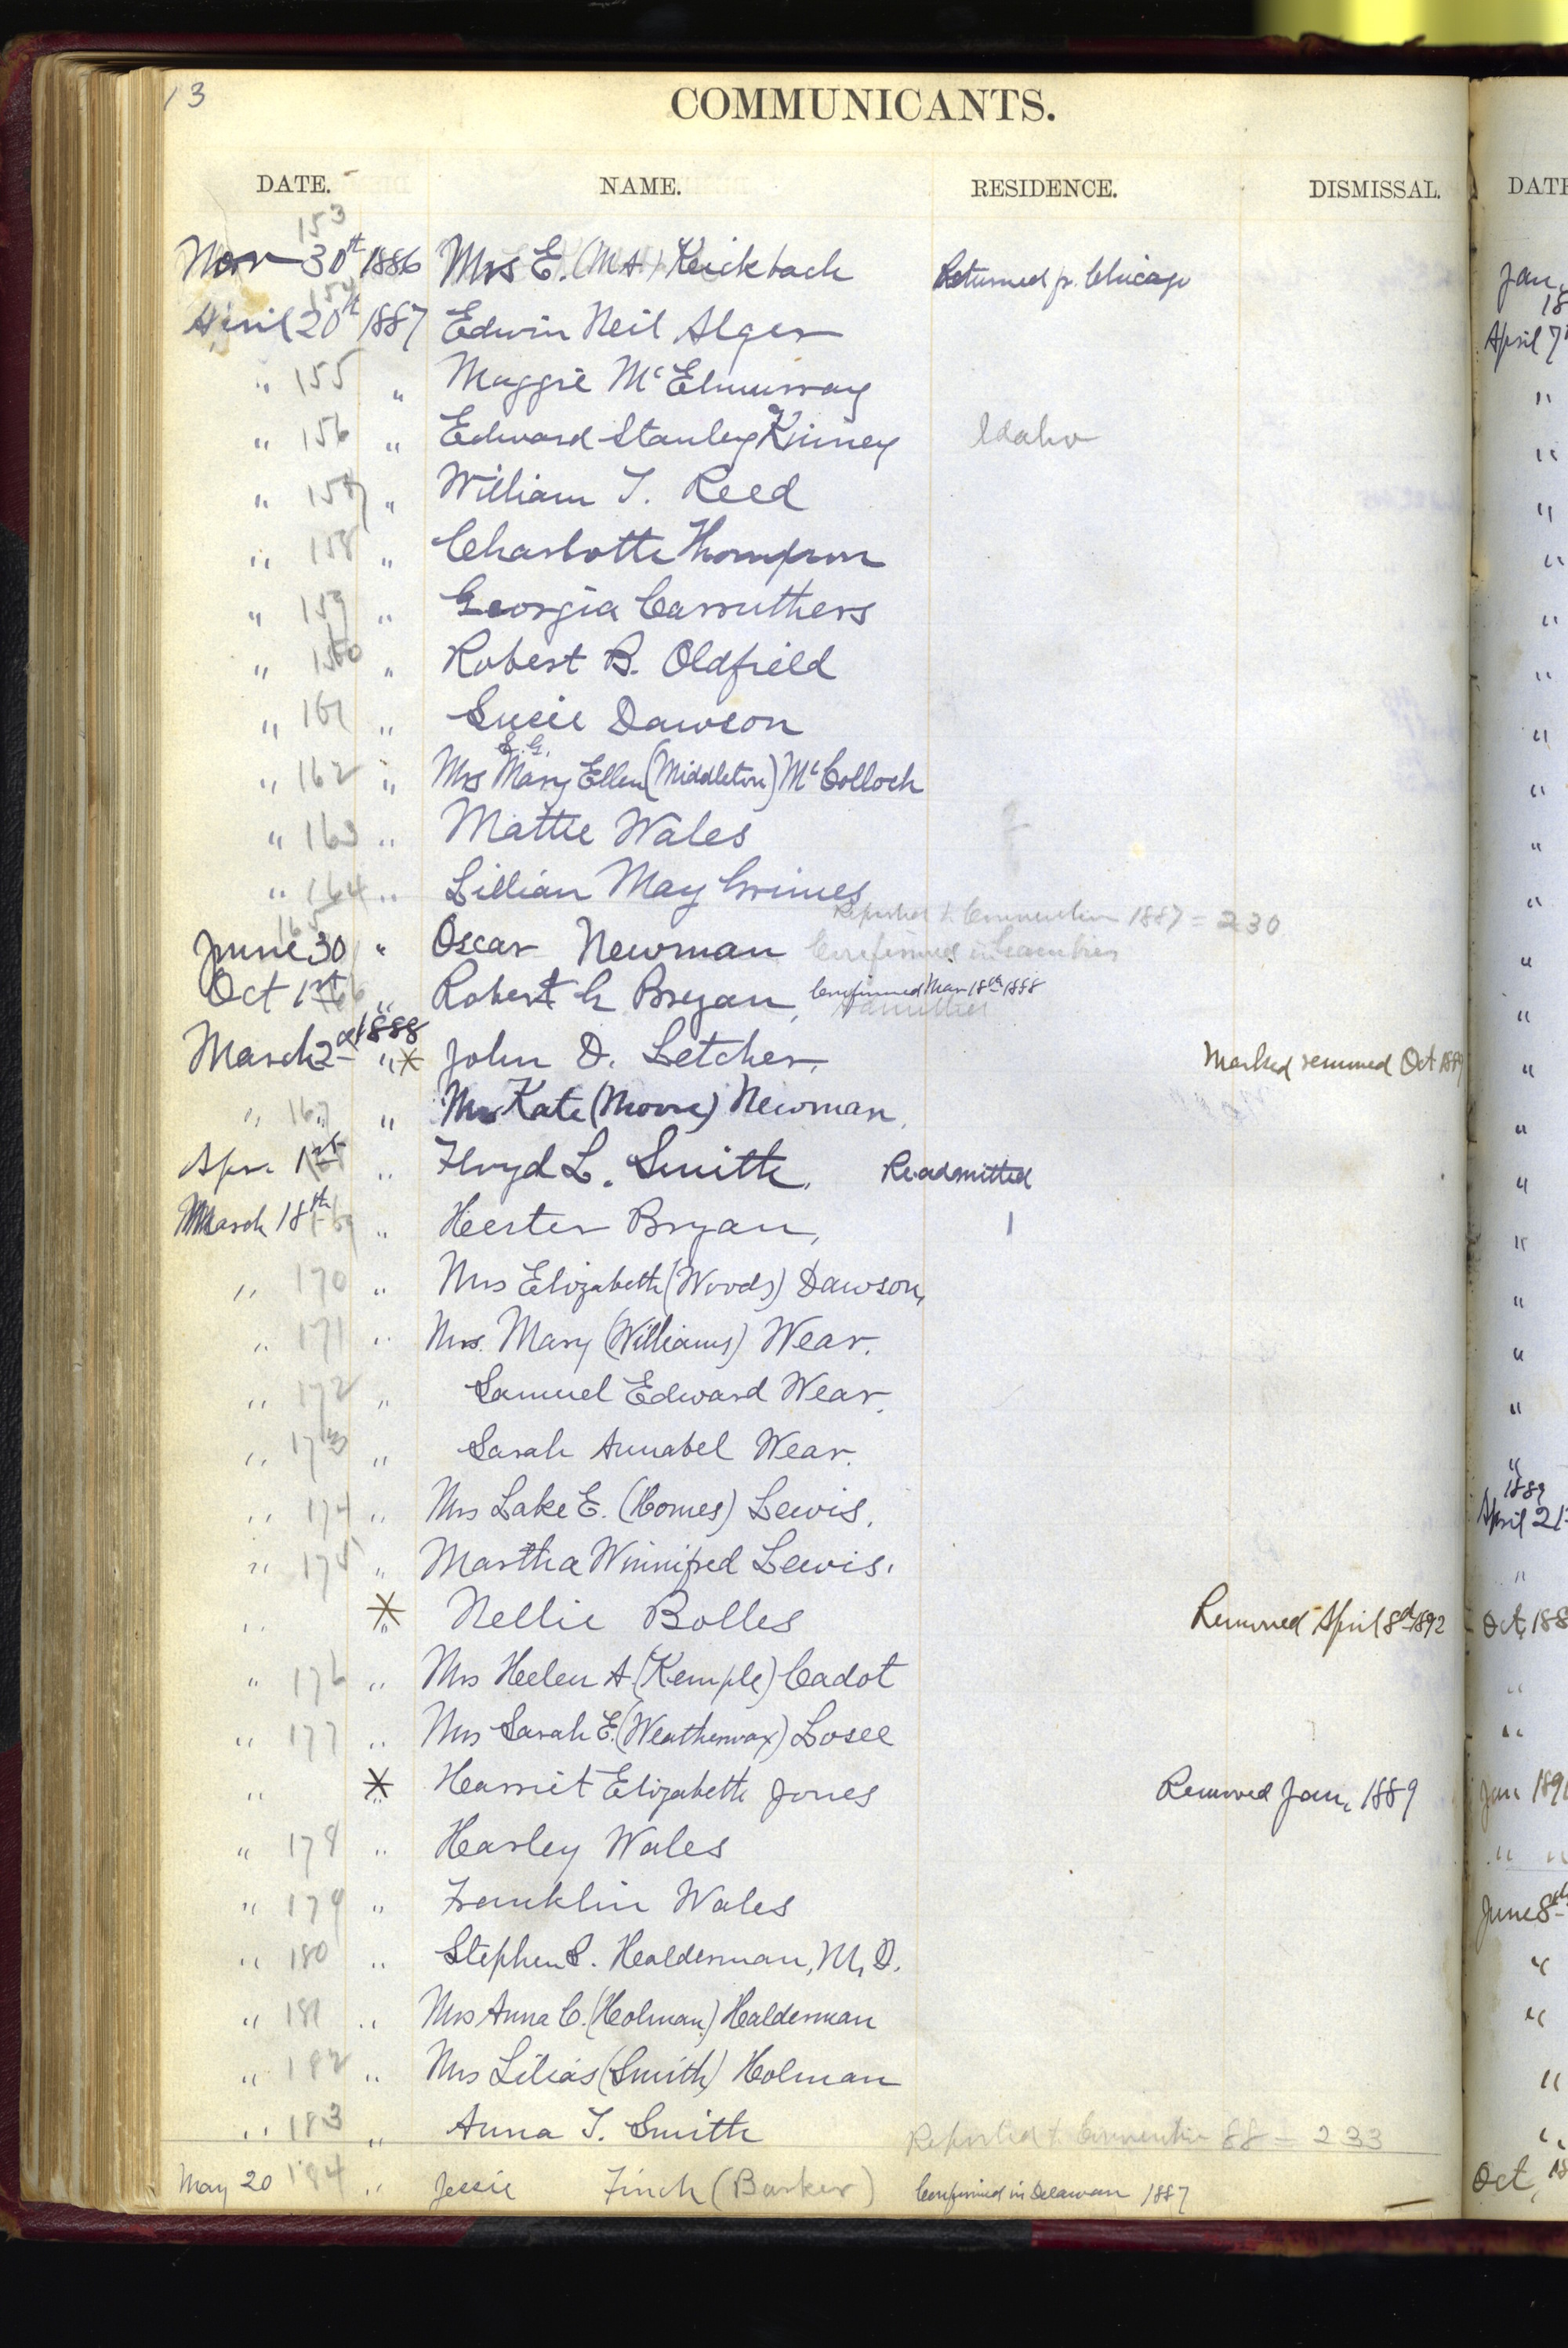 13
COMMUNICANTS.
DATE. NAME. RESIDENCE. DISMISSAL.
153
Nov 30th 1886 Mrs E. (Mt.) Keickbach Returned fr. Chicago
154
April 20th 1887 Edwin Neil Alger
" 155 " Maggie McElmurray
" 156 " Edward Stanley Kinney Idaho
" 157 " William T. Reed
" 158 " Charlotte Thompson
" 159 " Georgia Carruthers
" 160 " Robert B. Oldfield
" 161 " Susie Dawson
S. G.
" 162 " Mrs Mary Ellen (Middleton) McColloch
" 163 " Mattie Wales
" 164 " Lillian May Grimes
Reported to Convention 1887 = 230
165
June 30 " Oscar Newman Confirmed in
Oct 1st " Robert G Bryan, Confirmed Mar 18th 1888
1888
March 2d " * John D. Letcher. Marked removed Oct 1889
" 167 " Mrs Kate (Moore) Newman.
Apr. 1st " Floyd L. Smith. Readmitted
March 18th 169 " Hester Bryan,
" 170 " Mrs Elizabeth (Woods) Dawson,
" 171 " Mrs. Mary (Williams) Wear.
" 172 " Samuel Edward Wear.
" 173 " Sarah Annabel Wear.
" 174 " Mrs Lake E. (Homes) Lewis.
" 175 " Martha Winnifred Lewis.
" * " Nellie Bolles Removed April 8th 1892
" 176 " Mrs Helen A. (Kemple) Cadot
" 177 " Mrs Sarah E. (Weatherwax) Losee
" * " Harriet Elizabeth Jones Removed Jan, 1889
" 178 " Harley Wales
" 179 " Franklin Wales
" 180 " Stephen S. Halderman, M. D.
" 181 " Mrs Anna C. (Holman) Halderman
" 182 " Mrs Lilias (Smith) Holman
" 183 " Anna T. Smith Reported to Convention 88 = 233
May 20 184 " Jessie Finch (Barker) Confirmed in Delaware 1887
DATE
Jan.
18
April 7
1889
April 21
Oct, 188
Jan 189
June 8th
Oct, 18